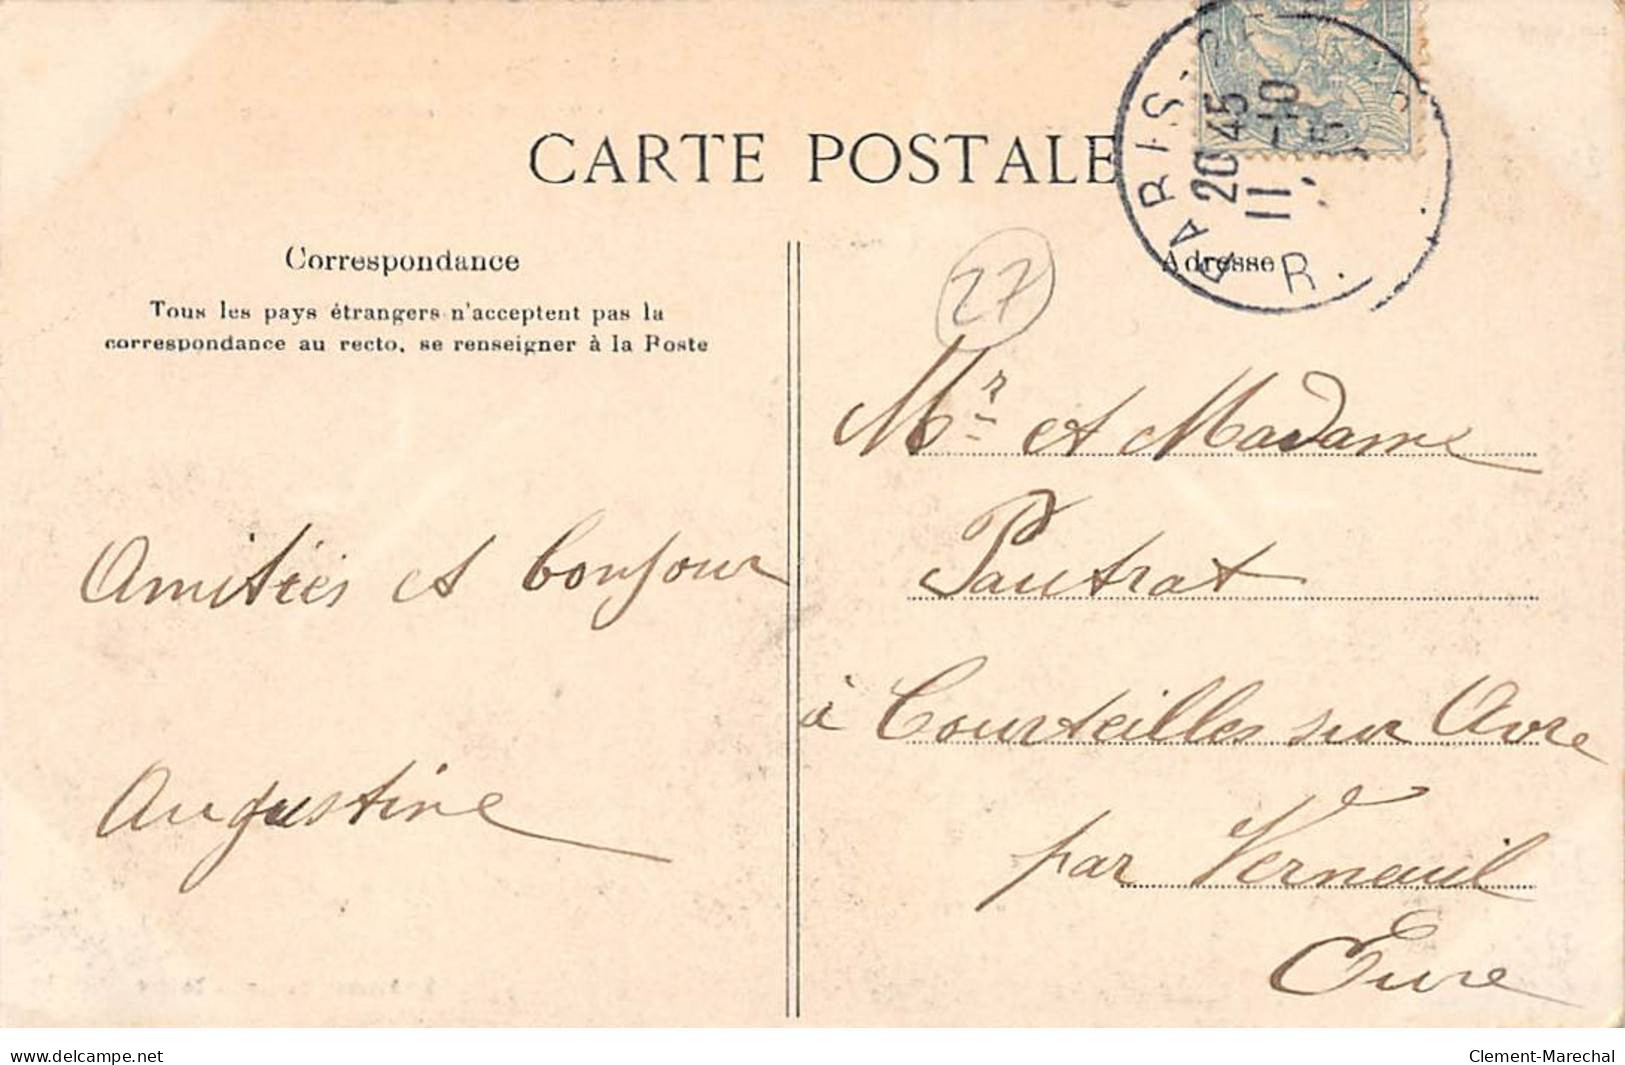 CARTE POSTALE
PARIS
20 45
11 -10
R.
Correspondance
Adresse
Tous les pays étrangers n'acceptent pas la
correspondance au recto, se renseigner à la Poste
27
Mr et Madame
Pautrat
à Courteilles sur Avre
par Verneuil
Eure
Amitiés et bonjour
Augustine
www.delcampe.net
Clement-Marechal